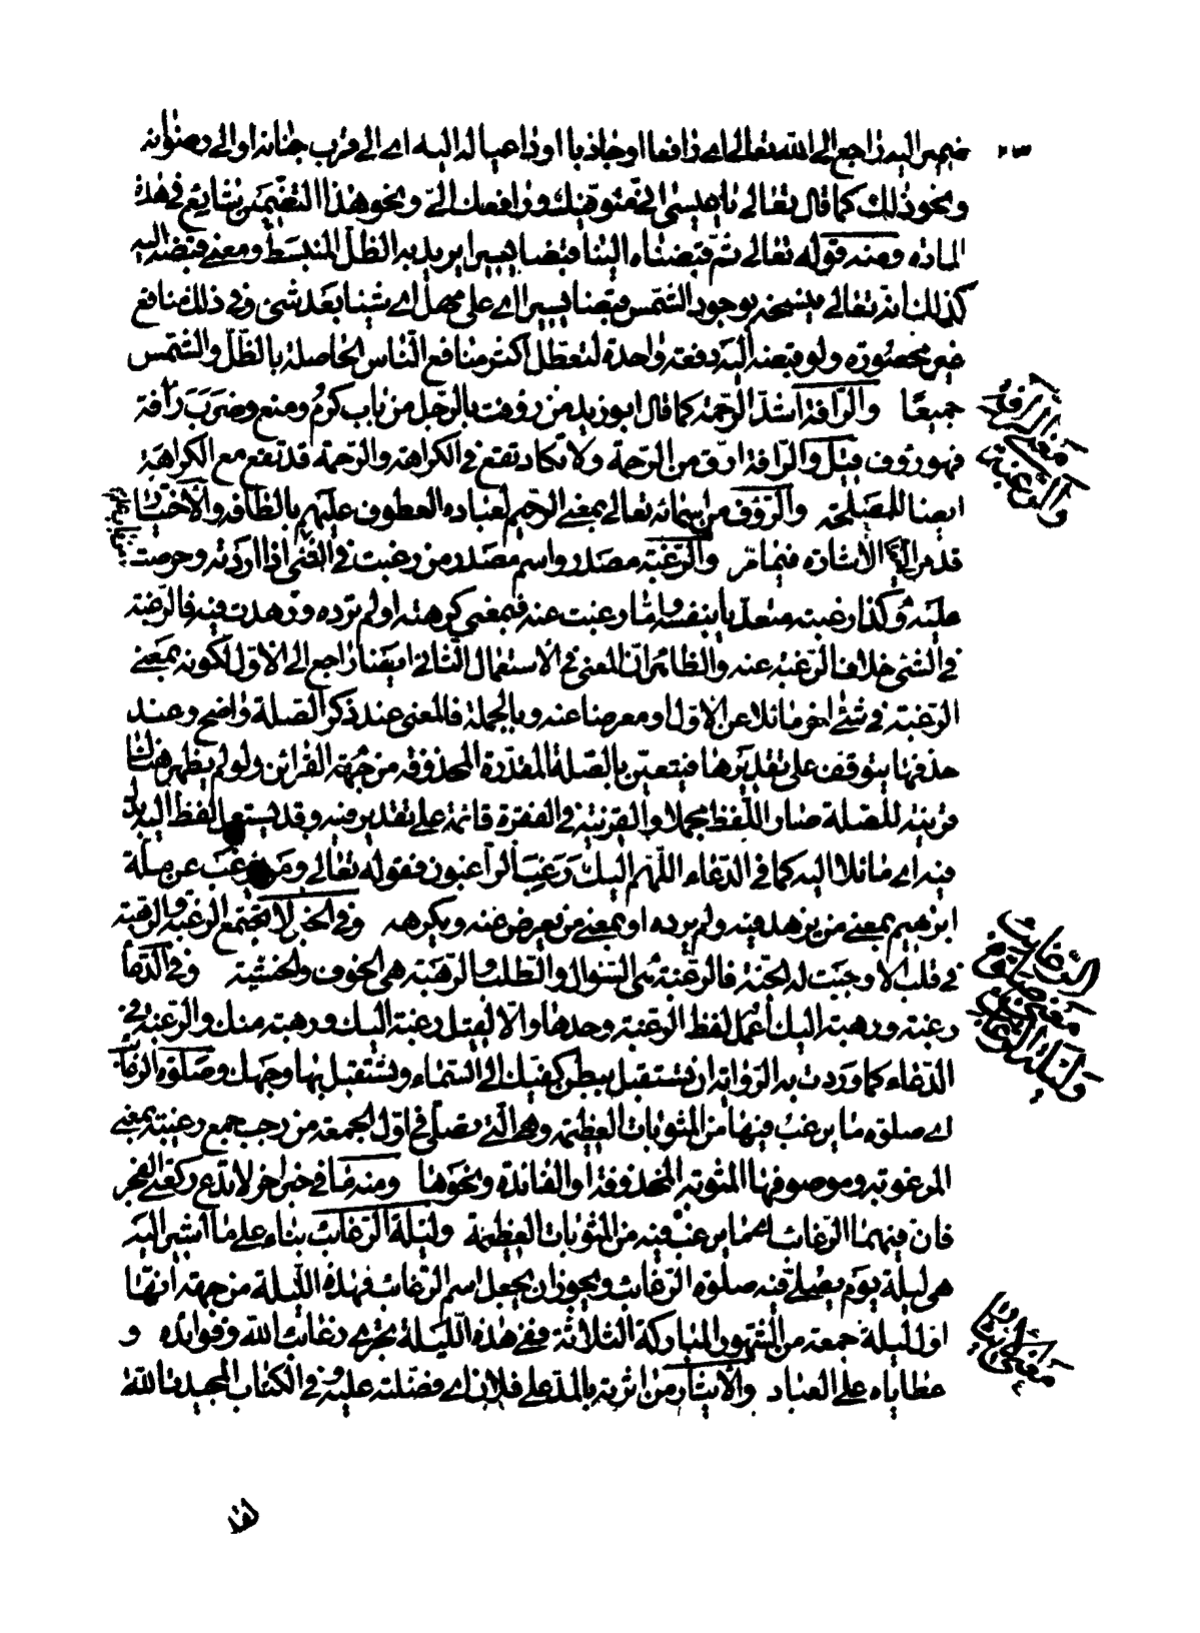 ضمير اليه راجع الى الله تعالى اى رافعا او جاذبا او داعيا له اليه اى الى قرب جنانه او الى رضوانه
ونحو ذلك كما قال تعالى يا عيسى انى متوفيك ورافعك الىّ ونحو هذا التضمير شايع فى هذه
المادة ومنه قوله تعالى ثم قبضناه الينا قبضا يسيرا يريد به الظل المنبسط ومعنى قبضه اليه
كذلك انه تعالى ينسخه بوجود الشمس قبضا يسيرا اى على مهل اى شيئا بعد شئ وفى ذلك منافع
غير محصورة ولو قبضه اليه دفعة واحدة لتعطل اكثر منافع الناس الحاصلة بالظل والشمس
جميعا والرأفة اشد الرحمة كما قال ابو زيد من رؤفت بالرجل من باب كرم ومنع وضرب رأفة
فهو رؤوف قيل والرأفة ارق من الرحمة ولا تكاد تقع فى الكراهة والرحمة قد تقع مع الكراهة
ايضا للمصلحة والرؤف من اسمائه تعالى بمعنى الرحيم لعباده العطوف عليهم بالطافه والاختيار
قد مر الاشارة فيما مر والرغبة مصدر واسم مصدر من رغبت فى الشئ اذا اردته وحرصت
عليه وكذا رغبته متعديا بنفسه واما رغبت عنه فبمعنى كرهته او لم ترده وزهدت فيه فالرغبة
فى الشئ خلاف الرغبة عنه والظاهر ان المعنى فى الاستعمال الثانى ايضا راجع الى الاول لكونه بمعنى
الرغبة فى شئ اخر مائلا عن الاول او معرضا عنه وبالجملة فالمعنى عند ذكر الصلة واضح وعند
حذفها يتوقف على تقديرها فيتعين بالصلة المقدرة المحذوفة من جهة القرائن ولو لم يظهر هناك
قرينة للصلة صار اللفظ مجملا والقرينة فى الفقرة قائمة على تقدير فيه وقد يستعمل لفظ اليه بدل
فيه اى مائلا اليه كما فى الدعاء اللهم اليك رغب الراغبون فقوله تعالى ومن يرغب عن ملة
ابرهيم بمعنى من يزهد فيه ولم يرده او بمعنى من يعرض عنه ويكرهه وفى الخبر لا تجتمع الرغبة والرهبة
فى قلب الا وجبت له الجنة فالرغبة هى السؤال والطلب والرهبة هى الخوف والخشية وفى الدعاء
رغبة ورهبة اليك اعمل لفظ الرغبة وحدها والا لقيل رغبة اليك ورهبة منك والرغبة فى
الدعاء كما وردت به الرواية ان تستقبل ببطن كفيك الى السماء وتستقبل بها وجهك وصلوة الرغائب
اى صلوة ما يرغب فيها من المثوبات العظيمة وهى التى تصلى فى اول الجمعة من رجب جمع رغيبة بمعنى
المرغوبة وموصوفها المثوبة المحذوفة او الفائدة ونحوها ومنه ما فى خبر اخر لا تدع ركعتى الفجر
فان فيهما الرغائب اى ما يرغب فيه من المثوبات العظيمة وليلة الرغائب بناء على ما اشير اليه
هى ليلة يوم يصلى فيه صلوة الرغائب ويجوز ان يجعل اسم الرغائب فى هذه الليلة من جهة انها
اول ليلة جمعة من الشهور المباركة الثلاثة ففى هذه الليلة تجرى رغائب الله وفوائده و
عطاياه على العباد والايثار من اثرته بالمد على فلان اى فضلته عليه وفى الكتاب المجيد تالله
لقد
معنى الرأفة
والرغبة
الرغائب
معنى صلوة
وليلة الرغائب
معنى الايثار